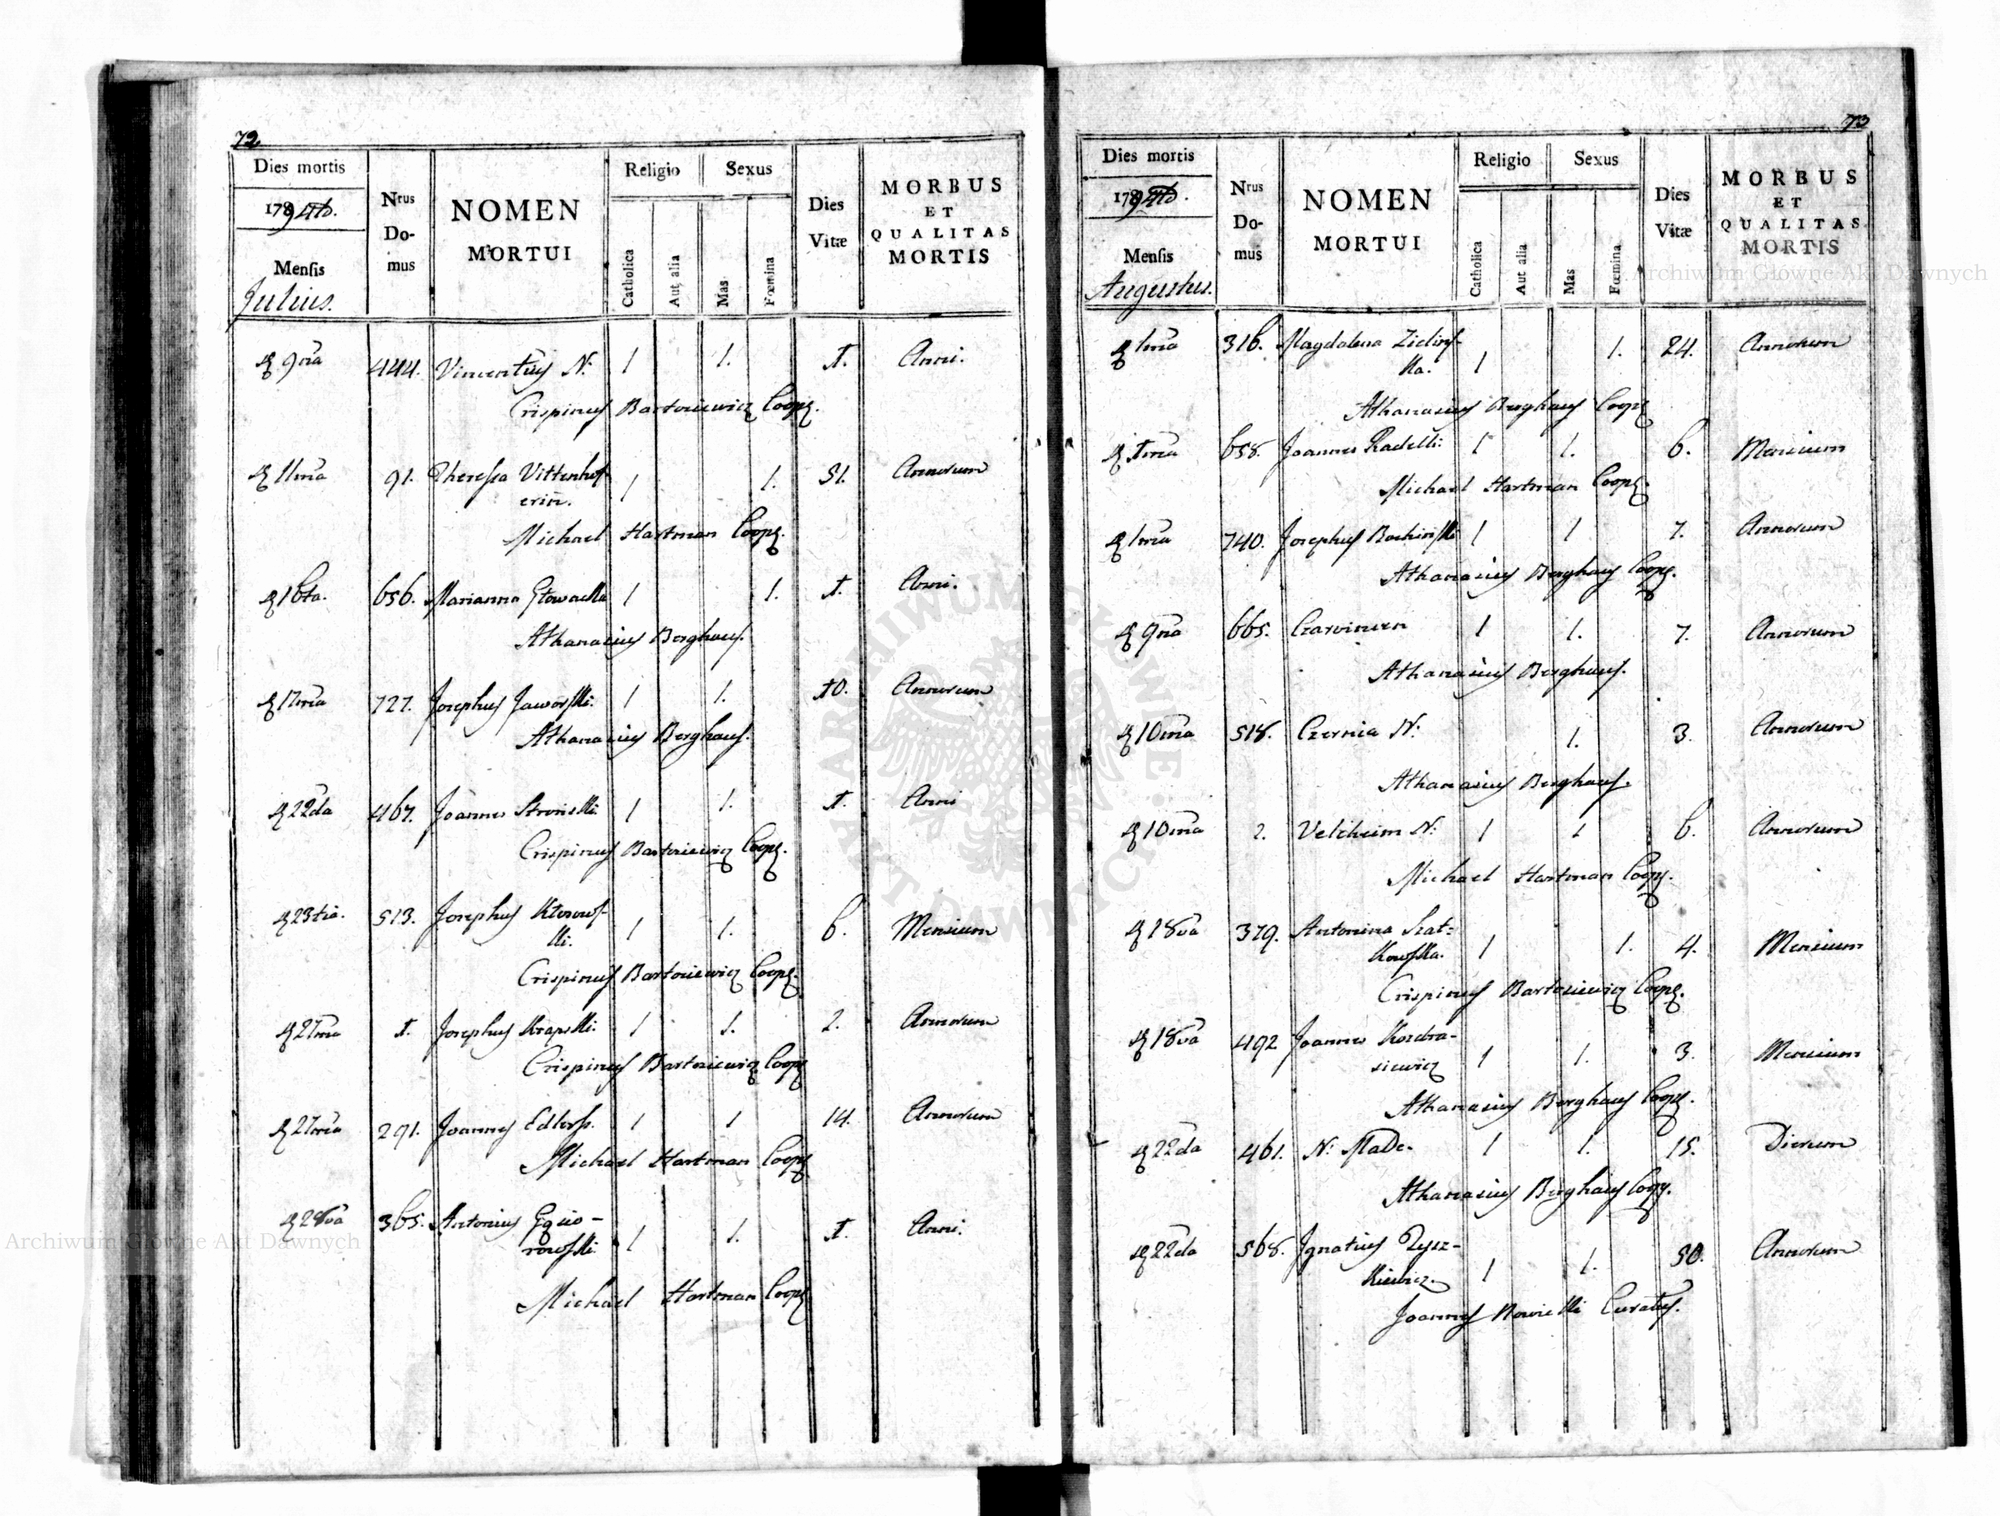 72
Dies mortis
179
Mensis
Julius.
Nrus Do-mus
NOMEN
MORTUI
Religio
Catholica
Aut alia
Sexus
Mas
Fœmina
Dies
Vitæ
MORBUS
ET
QUALITAS
MORTIS
9na 444. Vincentius N: 1 1. 1. Anni.
Crispinus Bartosiewicz Coop.
11ma 91. Theressa Vittenhof-
erin. 1 1. 51. Annorum
Michael Hartman Coop.
16ta. 656. Marianna Głowacka 1 1. 1. Anni.
Athanasius Berghaus.
17ma 727. Josephus Jaworski. 1 1. 10. Annorum
Athanasius Berghaus.
22da 467. Joannes 1 1. 1. Anni
Crispinus Bartosiewicz Coop.
23tia. 513. Josephus
ki. 1 1. 6. Mensium
Crispinus Bartosiewicz Coop.
27ma 1. Josephus 1 1. 2. Annorum
Crispinus Bartosiewicz Coop
27ma 291. Joannes 1 1 14. Annorum
Michael Hartman Coop
28va 365. Antonius
rowski. 1 1. 1. Anni.
Michael Hartman Coop
73
Dies mortis
179
Mensis
Augustus.
Nrus Do-mus
NOMEN
MORTUI
Religio
Catholica
Aut alia
Sexus
Mas
Fœmina
Dies
Vitæ
MORBUS
ET
QUALITAS
MORTIS
1ma 316. Magdalena Zielins-
ka. 1 1. 24. Annorum
Athanasius Berghaus Coop
1ma 658. Joannes Radelli: 1 1. 6. Mensium
Michael Hartman Coop.
740. Josephus 1 1 7. Annorum
Athanasius Berghaus Coop.
9na 665. 1 1. 7. Annorum
Athanasius Berghaus.
10ma 518. Czernia N: 1. 3. Annorum
Athanasius Berghaus.
10ma 2. Velcheim N: 1 1 6. Annorum
Michael Hartman Coop.
18va 379. Antonina Szat-
kowska. 1 1. 4. Mensium
Crispinus Bartosiewicz Coop.
18va 492 Joannes Kondra-
siewicz 1 1. 3. Mensium
Athanasius Berghaus Coop.
22da 461. N: Made. 1 1. 15. Dierum
Athanasius Berghaus Coop.
22da 568. Ignatius Rysz-
kiewicz. 1 1. 50. Annorum
Joannes Nowicki Curatus.
ARCHIWUM GŁÓWNE AKT DAWNYCH
Archiwum Główne Akt Dawnych
Archiwum Główne Akt Dawnych